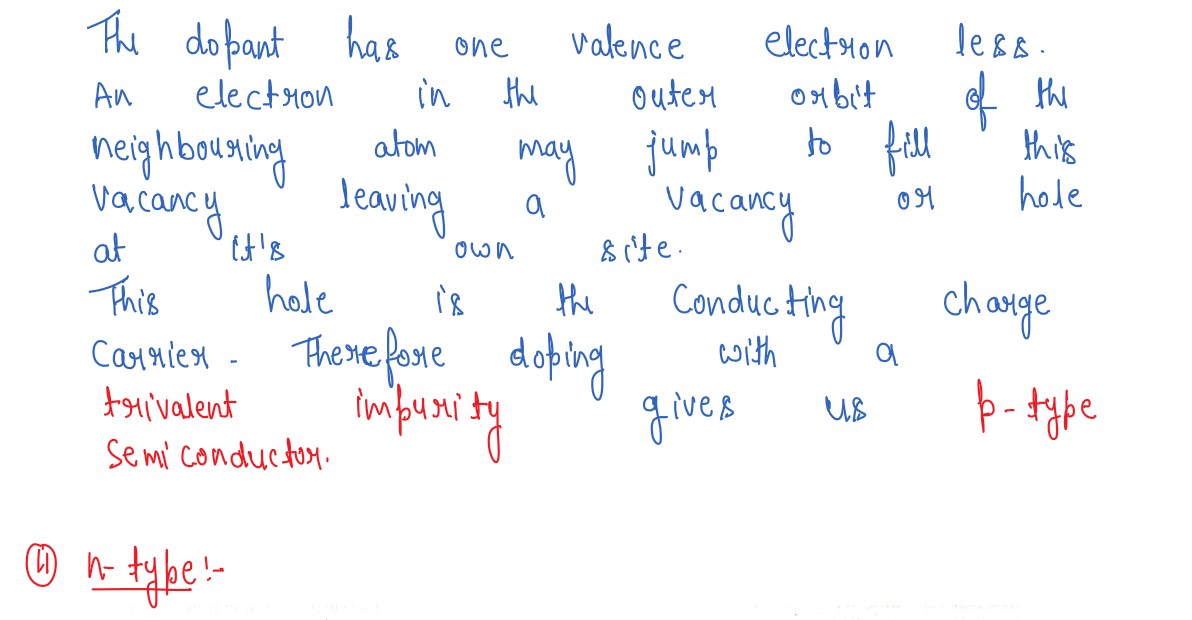 The dopant has one valence electron less.
An electron in the outer orbit of the
neighbouring atom may jump to fill this
vacancy leaving a vacancy or hole
at it's own site.
This hole is the Conducting charge
carrier. Therefore doping with a
trivalent impurity gives us p-type
semiconductor.
n-type:-